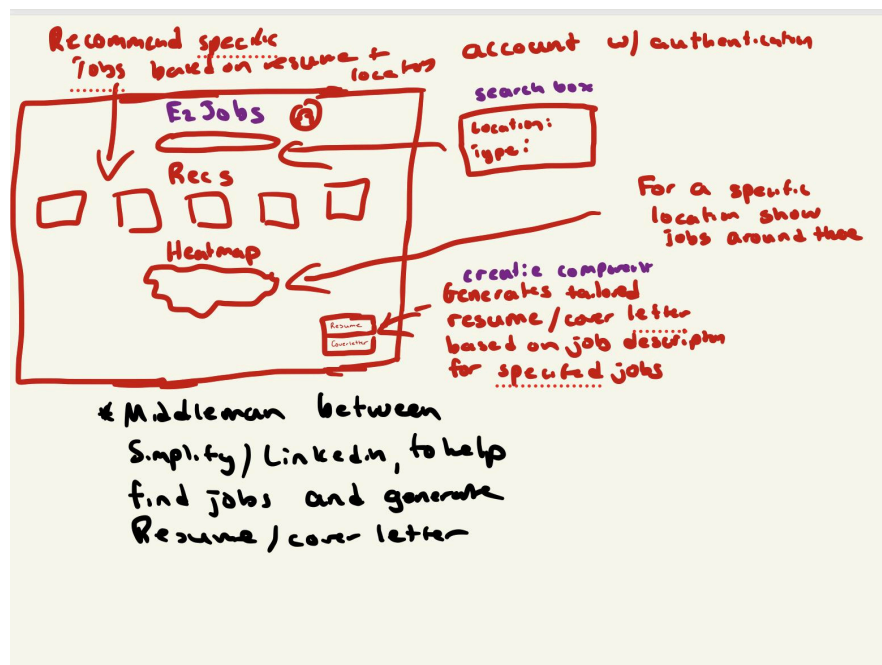 Recommend specific
Jobs based on resume +
location
account w/ authentication
search box
Location:
Type:
Ez Jobs
Recs
For a specific
location show
jobs around those
Heatmap
creative component
Generates tailored
resume/cover letter
based on job description
for specified jobs
Resume
Coverletter
* Middleman between
Simplify/LinkedIn, to help
find jobs and generate
Resume/cover letter